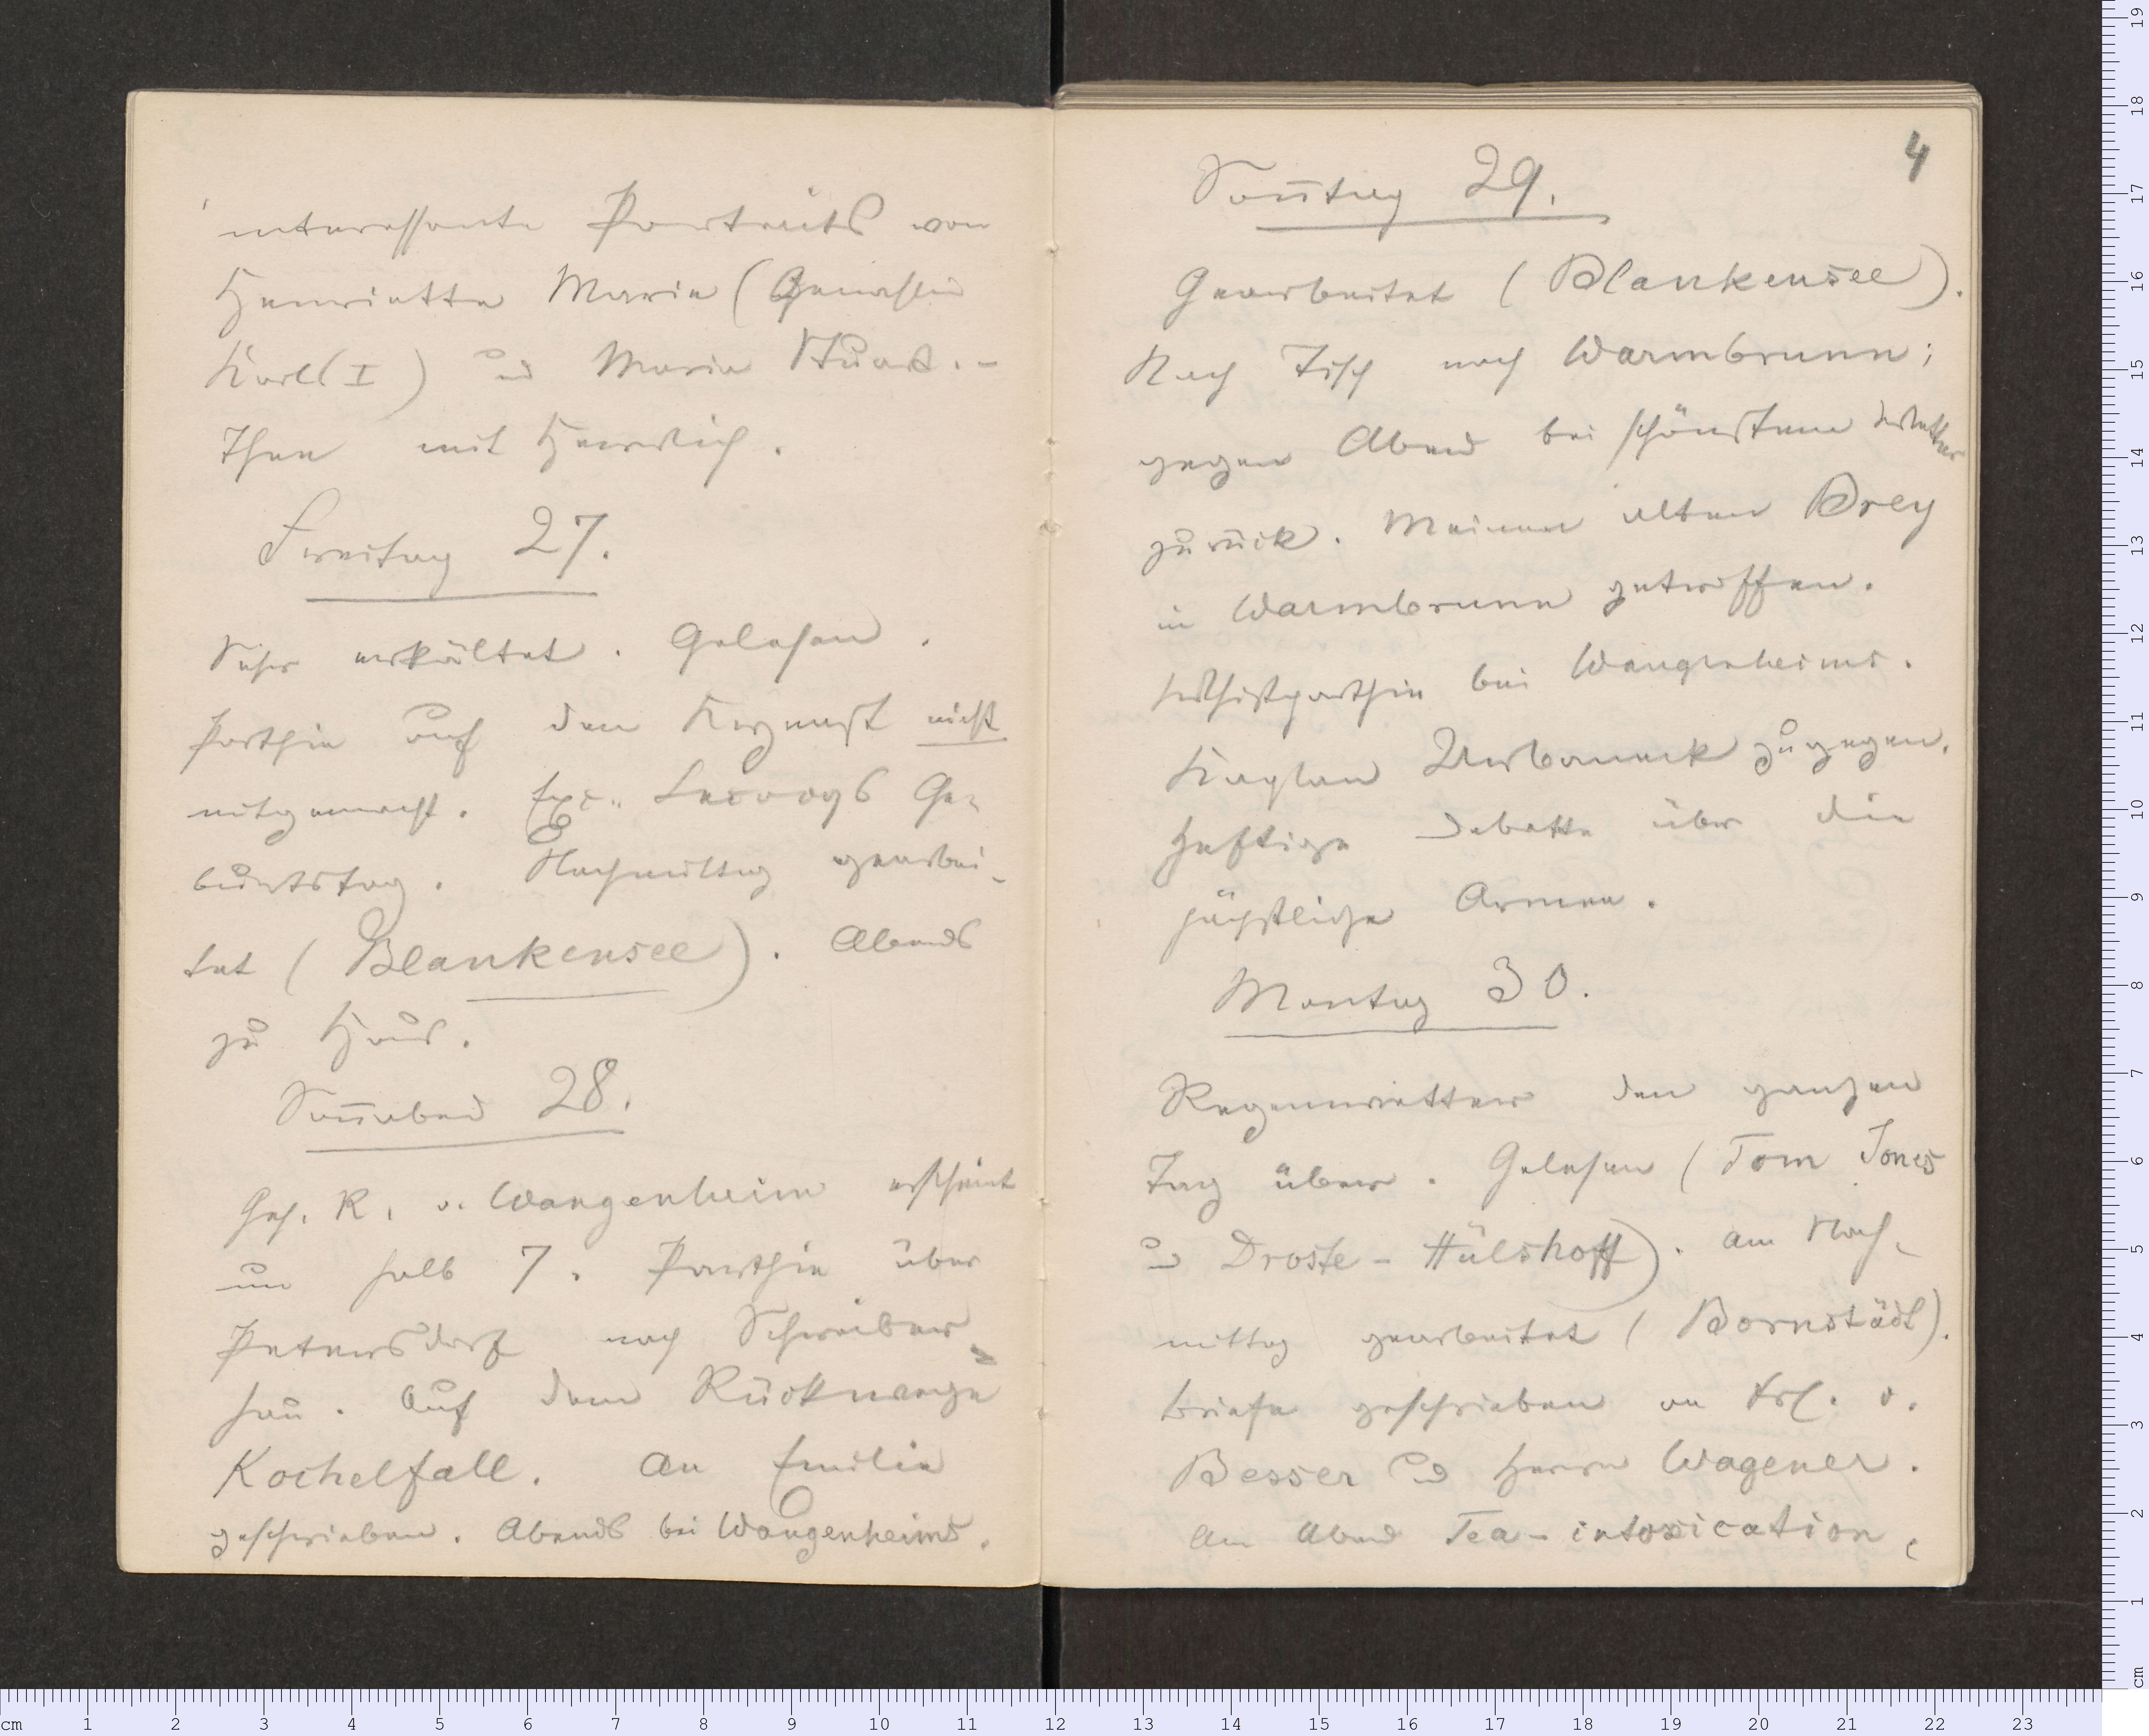 interessante Portraits von
Henriette Marie (Gemahlin
Karl (I) u Maria Stuart. –
Thee mit Heinrich.
Freitag 27.
Sehr erkältet. Gelesen.
Parthie auf den Kynast nicht
mitgemacht. Exc.
Ge-
burtstag. Nachmittag gearbei-
tet (Blankensee). Abends
zu Haus.
Son̄abend 28.
Geh. R. v. Wangenheim erscheint
um halb 7. Parthie über
Petersdorf nach Schreiber
hau. Auf dem Rückwege
Kochelfall. An Emilie
geschrieben. Abends bei Wangenheims.
4
Son̄tag 29.
Gearbeitet (Blankensee).
Nach Tisch nach Warmbrunn;
gegen Abend bei schönstem Wetter
zurück. Meinen alten Brey
in Warmbrunn getroffen.
Whistparthie bei Wangenheims.
Kaplan Urbaneck zugegen.
Heftige Debatte über die
päpstliche Armee.
Montag 30.
Regenwetter den ganzen
Tag über. Gelesen (Tom Jones
u Droste-Hülshoff). Am Nach-
mittag gearbeitet (Bornstädt).
Briefe geschrieben an Frl. v.
Besser u Herrn Wagener.
Am Abend Tea-intoxication,